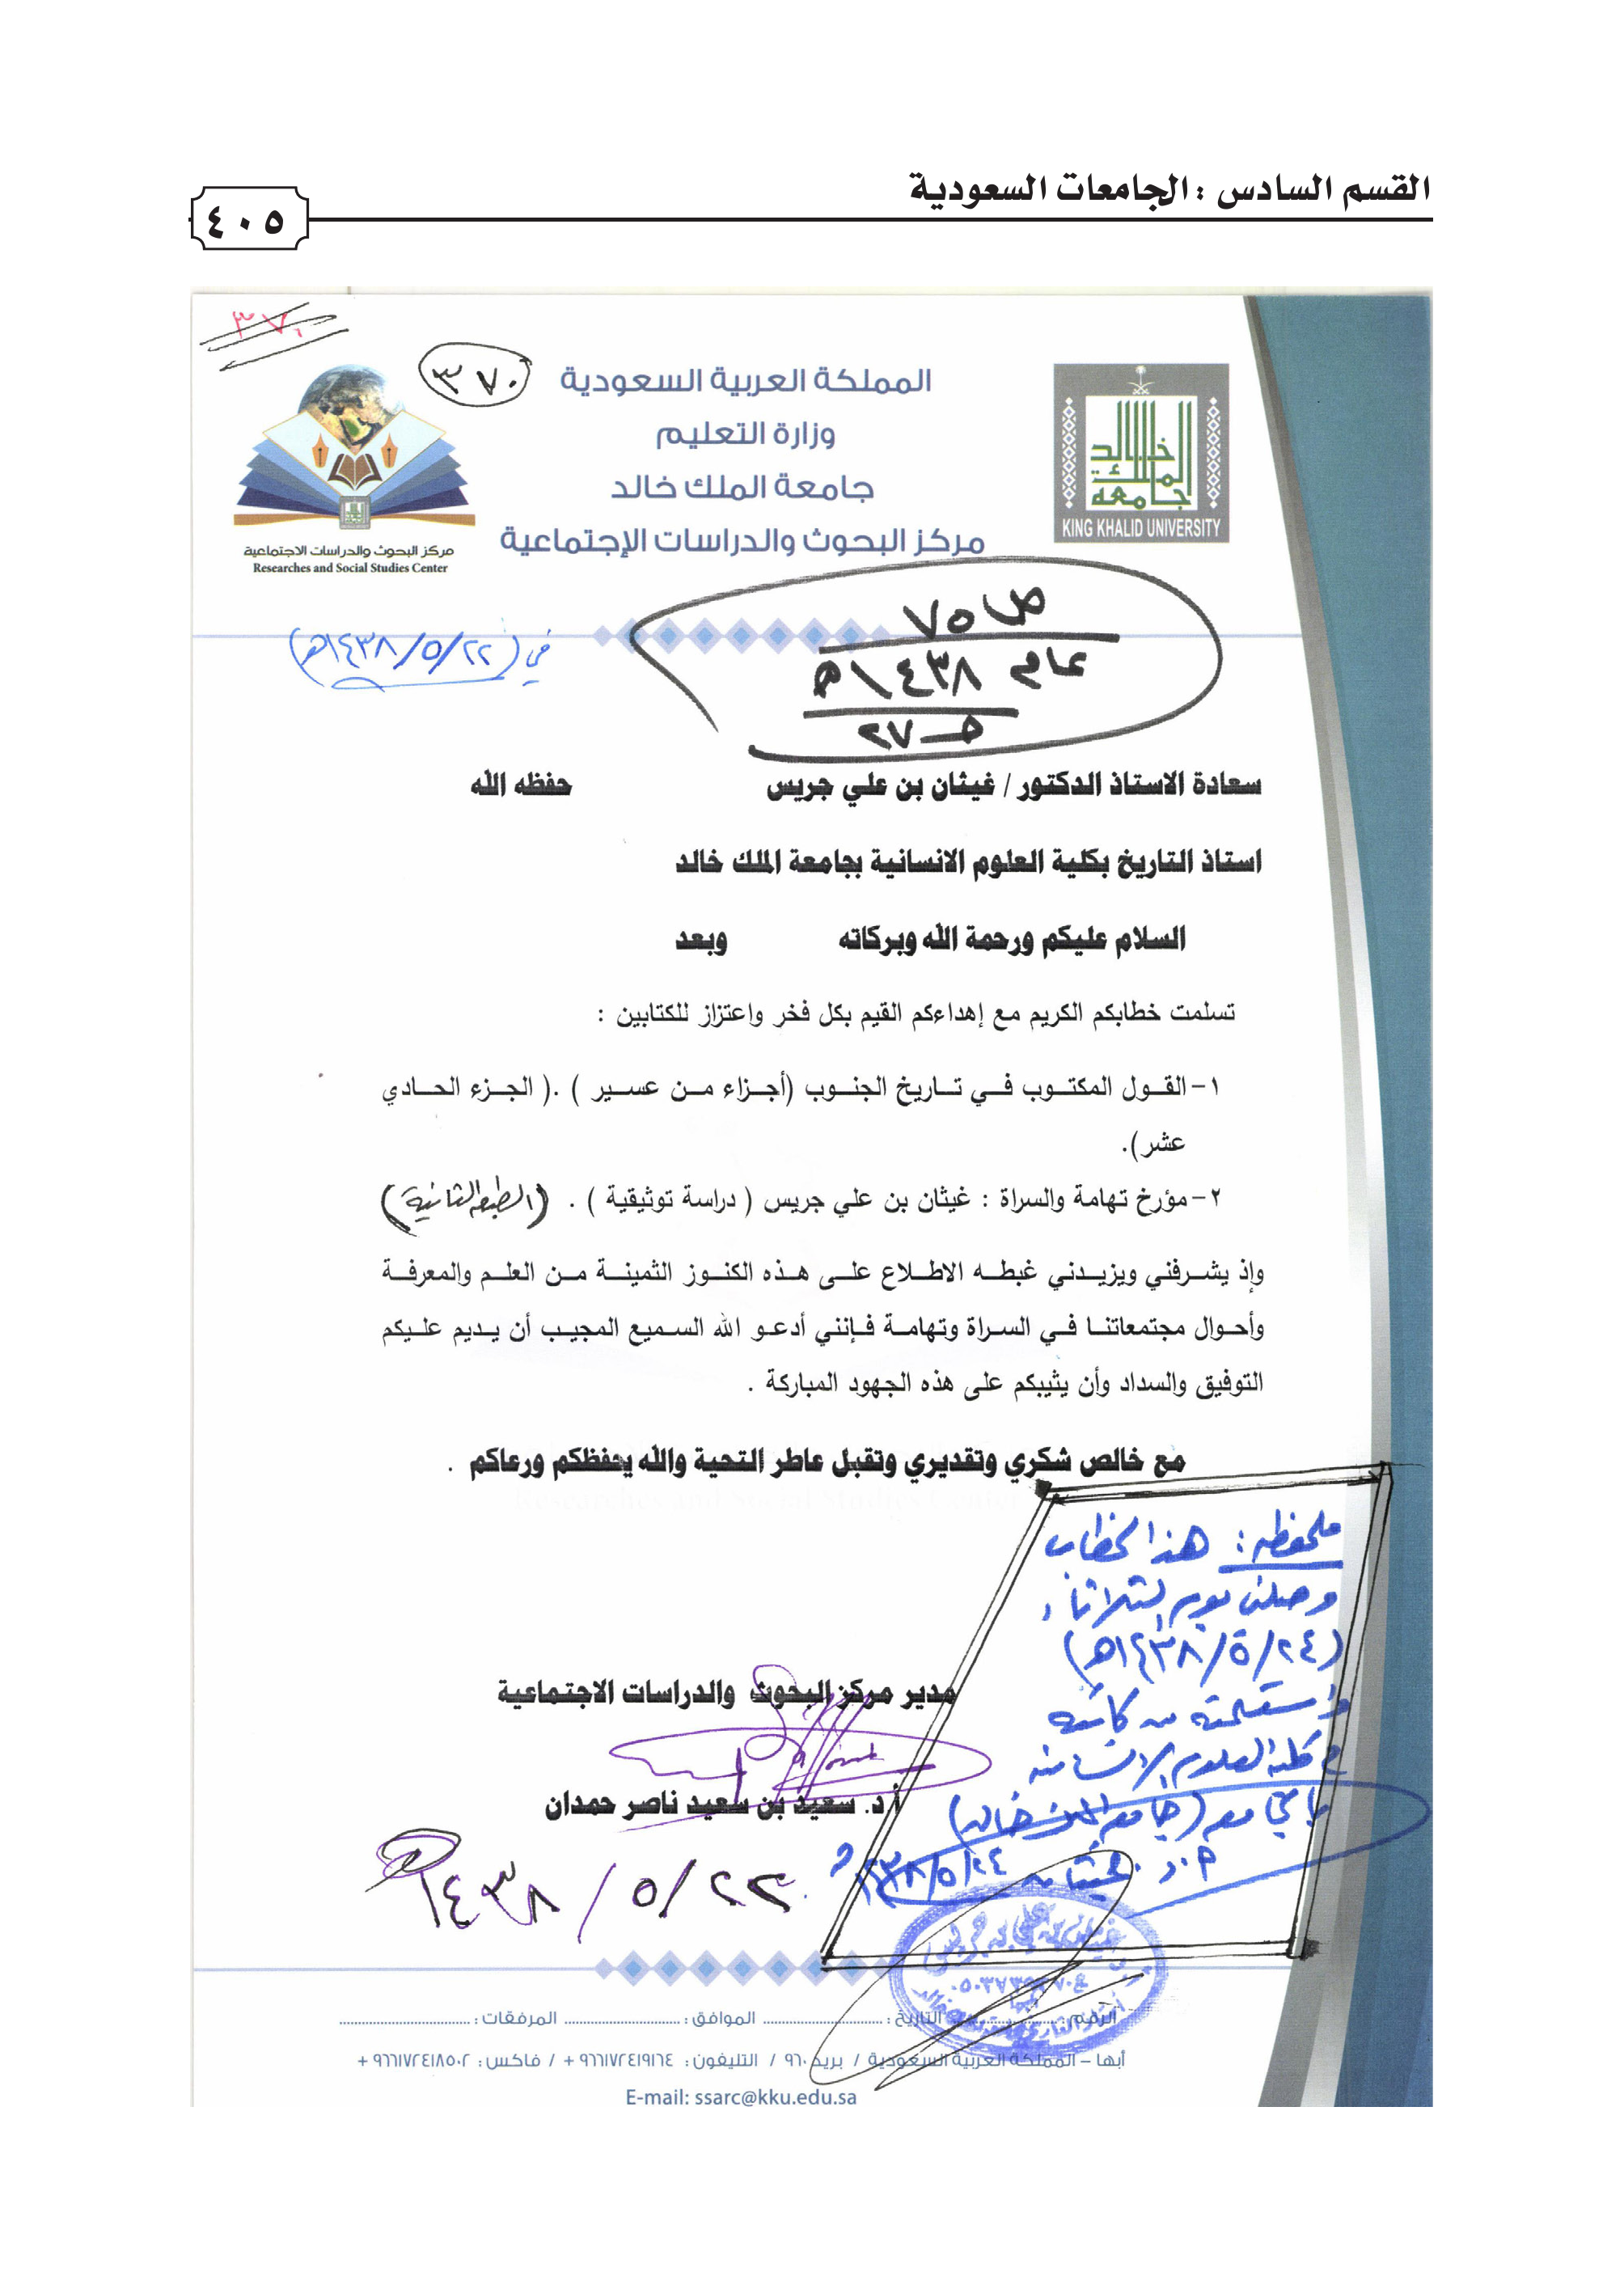 القسم السادس : الجامعات السعودية
٤٠٥
٣٧٠
٣٧٠
المملكة العربية السعودية
وزارة التعليم
جامعة الملك خالد
مركز البحوث والدراسات الإجتماعية
جامعة الملك خالد
KING KHALID UNIVERSITY
مركز البحوث والدراسات الاجتماعية
Researches and Social Studies Center
ص ٧٥
عام ١٤٣٨هـ
جـ ٢٧
في (٢٢/٥/١٤٣٨هـ)
سعادة الاستاذ الدكتور / غيثان بن علي جريس حفظه الله
استاذ التاريخ بكلية العلوم الانسانية بجامعة الملك خالد
السلام عليكم ورحمة الله وبركاته وبعد
تسلمت خطابكم الكريم مع إهداءكم القيم بكل فخر واعتزاز للكتابين :
١- القول المكتوب في تاريخ الجنوب (أجزاء من عسير ) .( الجزء الحادي
عشر).
٢- مؤرخ تهامة والسراة : غيثان بن علي جريس ( دراسة توثيقية ) . (الطبعة الثانية)
وإذ يشرفني ويزيدني غبطه الاطلاع على هذه الكنوز الثمينة من العلم والمعرفة
وأحوال مجتمعاتنا في السراة وتهامة فإنني أدعو الله السميع المجيب أن يديم عليكم
التوفيق والسداد وأن يثيبكم على هذه الجهود المباركة .
مع خالص شكري وتقديري وتقبل عاطر التحية والله يحفظكم ورعاكم .
مدير مركز البحوث والدراسات الاجتماعية
أ.د. سعيد بن سعيد ناصر حمدان
٢٢/٥/١٤٣٨هـ
ملحظه : هذا الخطاب
وصلني يوم الثلاثاء
(٢٤/٥/١٤٣٨هـ)
واستلمته من كاتبه
في كلية العلوم الإنسانية
(جامعة الملك خالد)
أ.د. غيثان ٢٤/٥/١٤٣٨هـ
الرقم : التاريخ : الموافق : المرفقات :
أبها – المملكة العربية السعودية / بريد ٩٦٠ / التليفون : ٩٦٦١٧٢٤١٩١٦٤ + / فاكس : ٩٦٦١٧٢٤١٨٥٠٢ +
E-mail: ssarc@kku.edu.sa